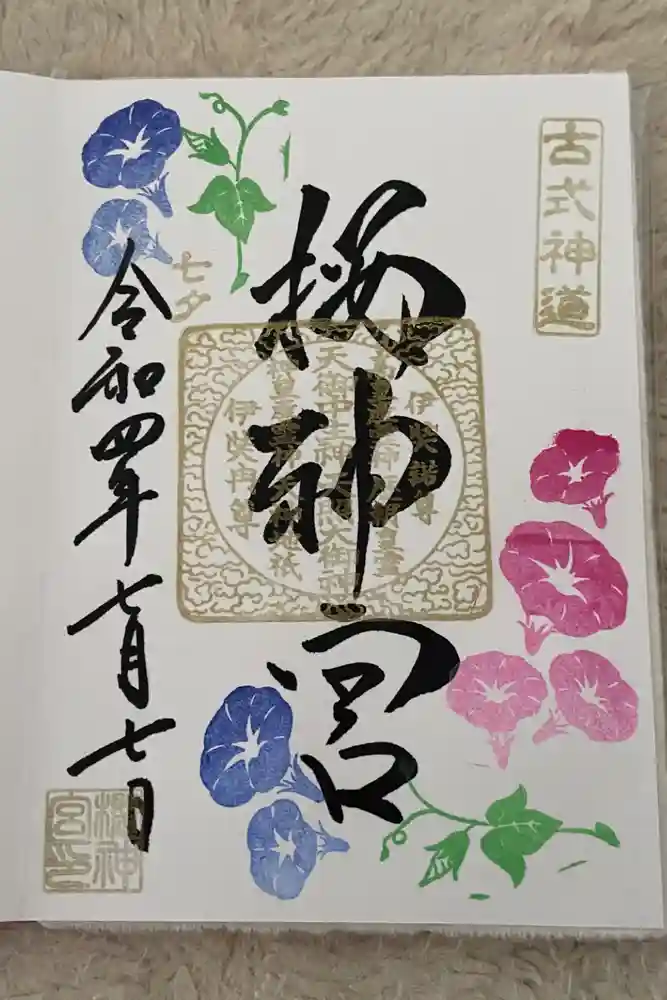 古式神道
櫻神宮
伊弉諾尊
天御中主神天照大御神
伊弉冉尊
七夕
令和四年七月七日
櫻神
宮印